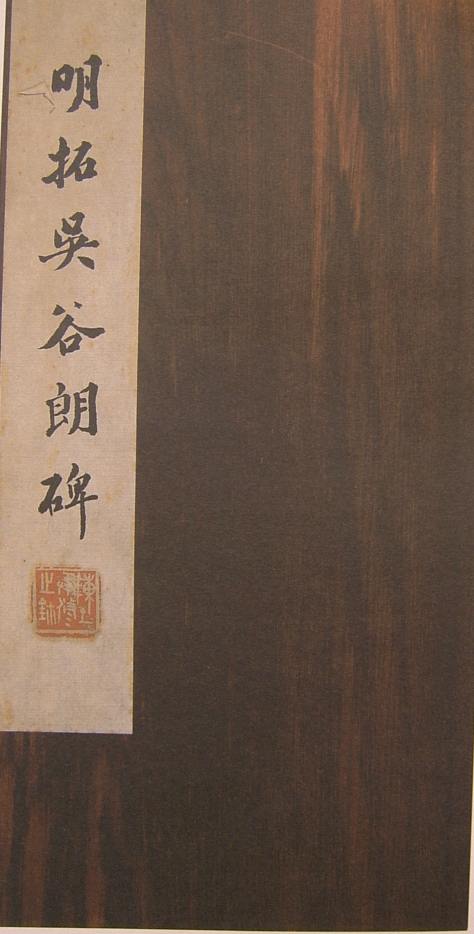 明拓吳谷朗碑